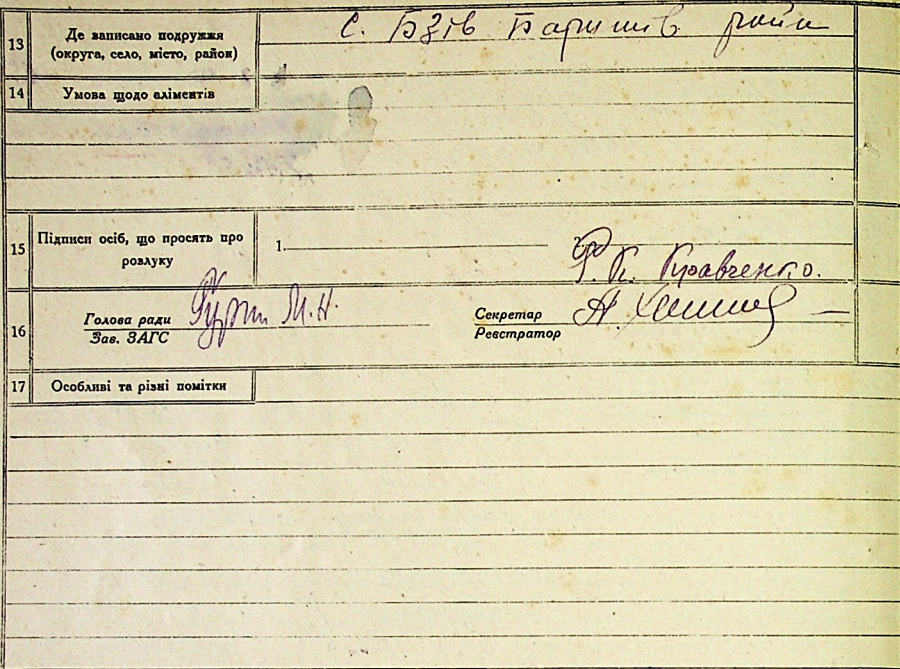 13 Де записано подружжя (округа, село, місто, район) с. Бзів Баришів. район
14 Умова щодо аліментів
15 Підписи осіб, що просять про розлуку 1. 2.
Кравченко.
16 Голова ради М. Н. Секретар
Зав. ЗАГС Реєстратор
17 Особливі та різні помітки